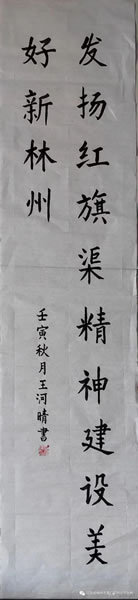 发扬红旗渠精神建设美
好新林州
壬寅秋月王河晴书